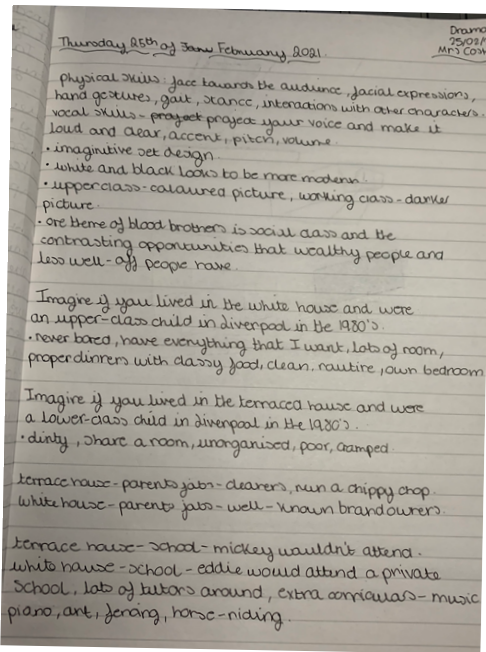 Drama
25/02/
Mrs
Thursday 25th of Janu February 2021.
physical skills: face towards the audience, facial expressions,
hand gestures, gait, stance, interactions with other characters.
vocal skills - project project your voice and make it
loud and clear, accent, pitch, volume.
• imaginitive set design.
• white and black looks to be more modern.
• upperclass - coloured picture, working class - darker
picture.
• one theme of blood brothers is social class and the
contrasting opportunities that wealthy people and
less well-off people have.
Imagine if you lived in the white house and were
an upper-class child in liverpool in the 1980's.
• never bored, have everything that I want, lots of room,
proper dinners with classy food, clean, routine, own bedroom
Imagine if you lived in the terraced house and were
a lower-class child in liverpool in the 1980's.
• dirty, share a room, unorganised, poor, cramped.
terrace house - parents jobs - cleaners, run a chippy chop.
white house - parents jobs - well-known brand owners.
terrace house - school - mickey wouldn't attend.
white house - school - eddie would attend a private
school, lots of tutors around, extra corriculars - music
piano, art, fencing, horse-riding.